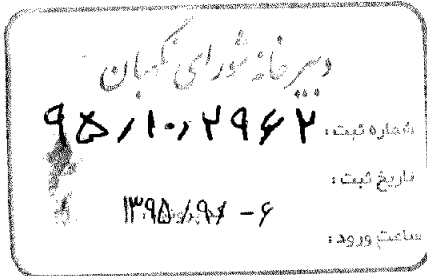 دبیرخانه شورای نگهبان
شماره ثبت: ۹۵/۱۰۲۹۶۲
تاریخ ثبت:
۱۳۹۵/ ۶ -
ساعت ورود: